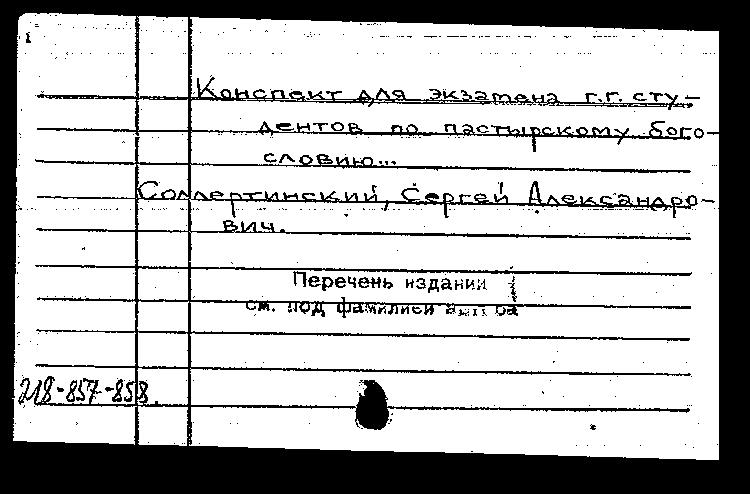 1
Конспект для экзамена г.г. сту-
дентов по пастырскому бого-
словию...
Соллертинский, Сергей Александро-
вич.
Перечень издании
см. под фамилией
218-857-858.